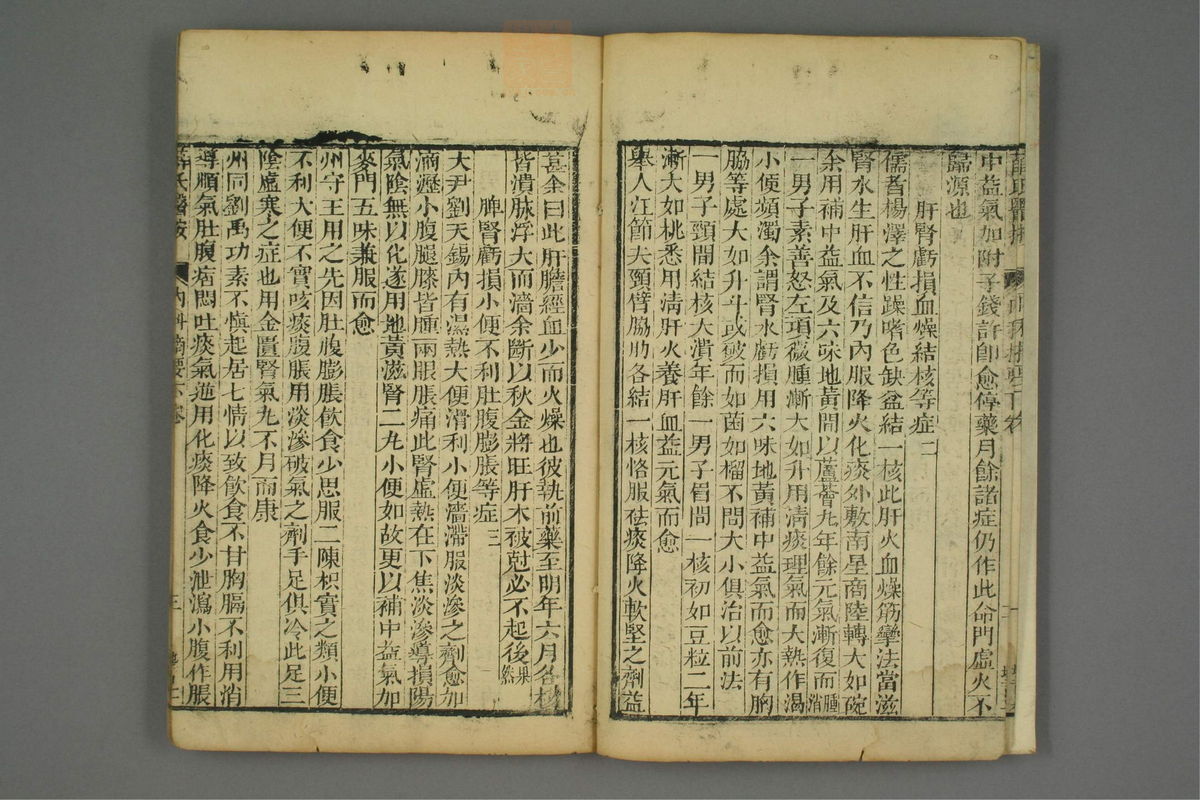 中益氣加附子錢許卽愈停藥月餘諸症仍作此命門虛火不
歸源也
肝腎虧損血燥結核等症二
儒者楊澤之性躁嗜色缺盆結一核此肝火血燥筋攣法當滋
腎水生肝血不信乃內服降火化痰外敷南星商陸轉大如碗
余用補中益氣及六味地黃間以蘆薈丸年餘元氣漸復而腫消
一男子素善怒左項微腫漸大如升用清痰理氣而大熱作渴
小便頻濁余謂腎水虧損用六味地黃補中益氣而愈亦有胸
脇等處大如升斗或破而如菌如榴不問大小俱治以前法
一男子頸間結核大潰年餘一男子眉間一核初如豆粒二年
漸大如桃悉用清肝火養肝血益元氣而愈
舉人江節夫頸臂脇肋各結一核恪服祛痰降火軟堅之劑益
甚余曰此肝膽經血少而火燥也彼執前藥至明年六月各核
皆潰脉浮大而濇余斷以秋金將旺肝木被尅必不起後果然
脾腎虧損小便不利肚腹膨脹等症三
大尹劉天錫內有濕熱大便滑利小便濇滯服淡滲之劑愈加
滴瀝小腹腿膝皆腫兩眼脹痛此腎虛熱在下焦淡滲導損陽
氣陰無以化遂用地黃滋腎二丸小便如故更以補中益氣加
麥門五味兼服而愈
州守王用之先因肚腹膨脹飲食少思服二陳枳實之類小便
不利大便不實咳痰腹脹用淡滲破氣之劑手足俱冷此足三
陰虛寒之症也用金匱腎氣丸不月而康
州同劉禹功素不慎起居七情以致飲食不甘胸膈不利用消
導順氣肚腹痞悶吐痰氣逆用化痰降火食少泄瀉小腹作脹
薛氏醫案 內科摘要下卷